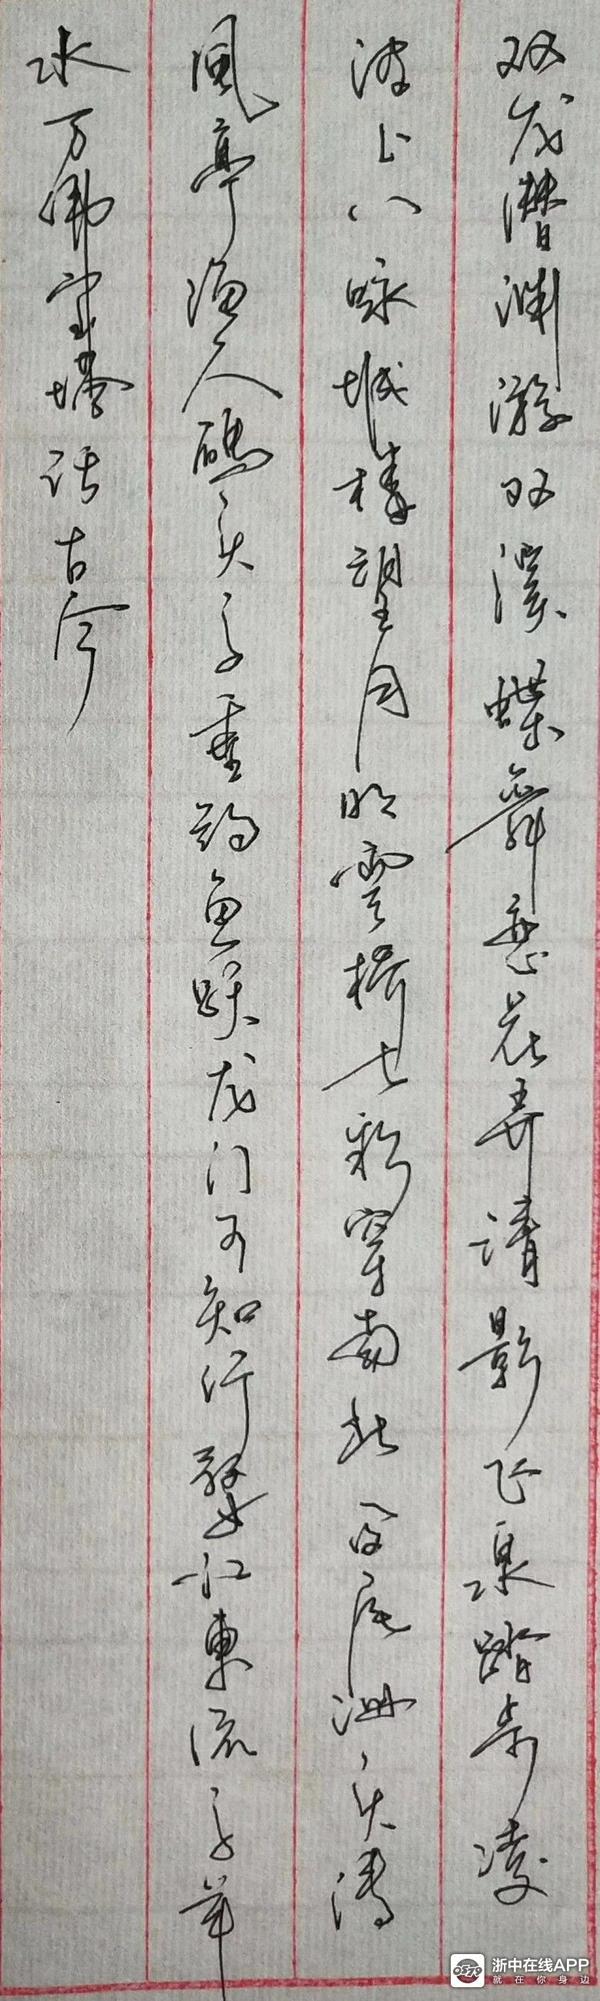 双龙潜渊游双溪蝶舞恋花弄清影飞泉踏步凌
波上八咏城楼望月明虹桥七彩穿南北百尺洲头清
风亭渔人码头子垂钓鱼跃龙门可知行婺江东流千年
水万佛宝塔话古今
浙中在线APP
就在你身边